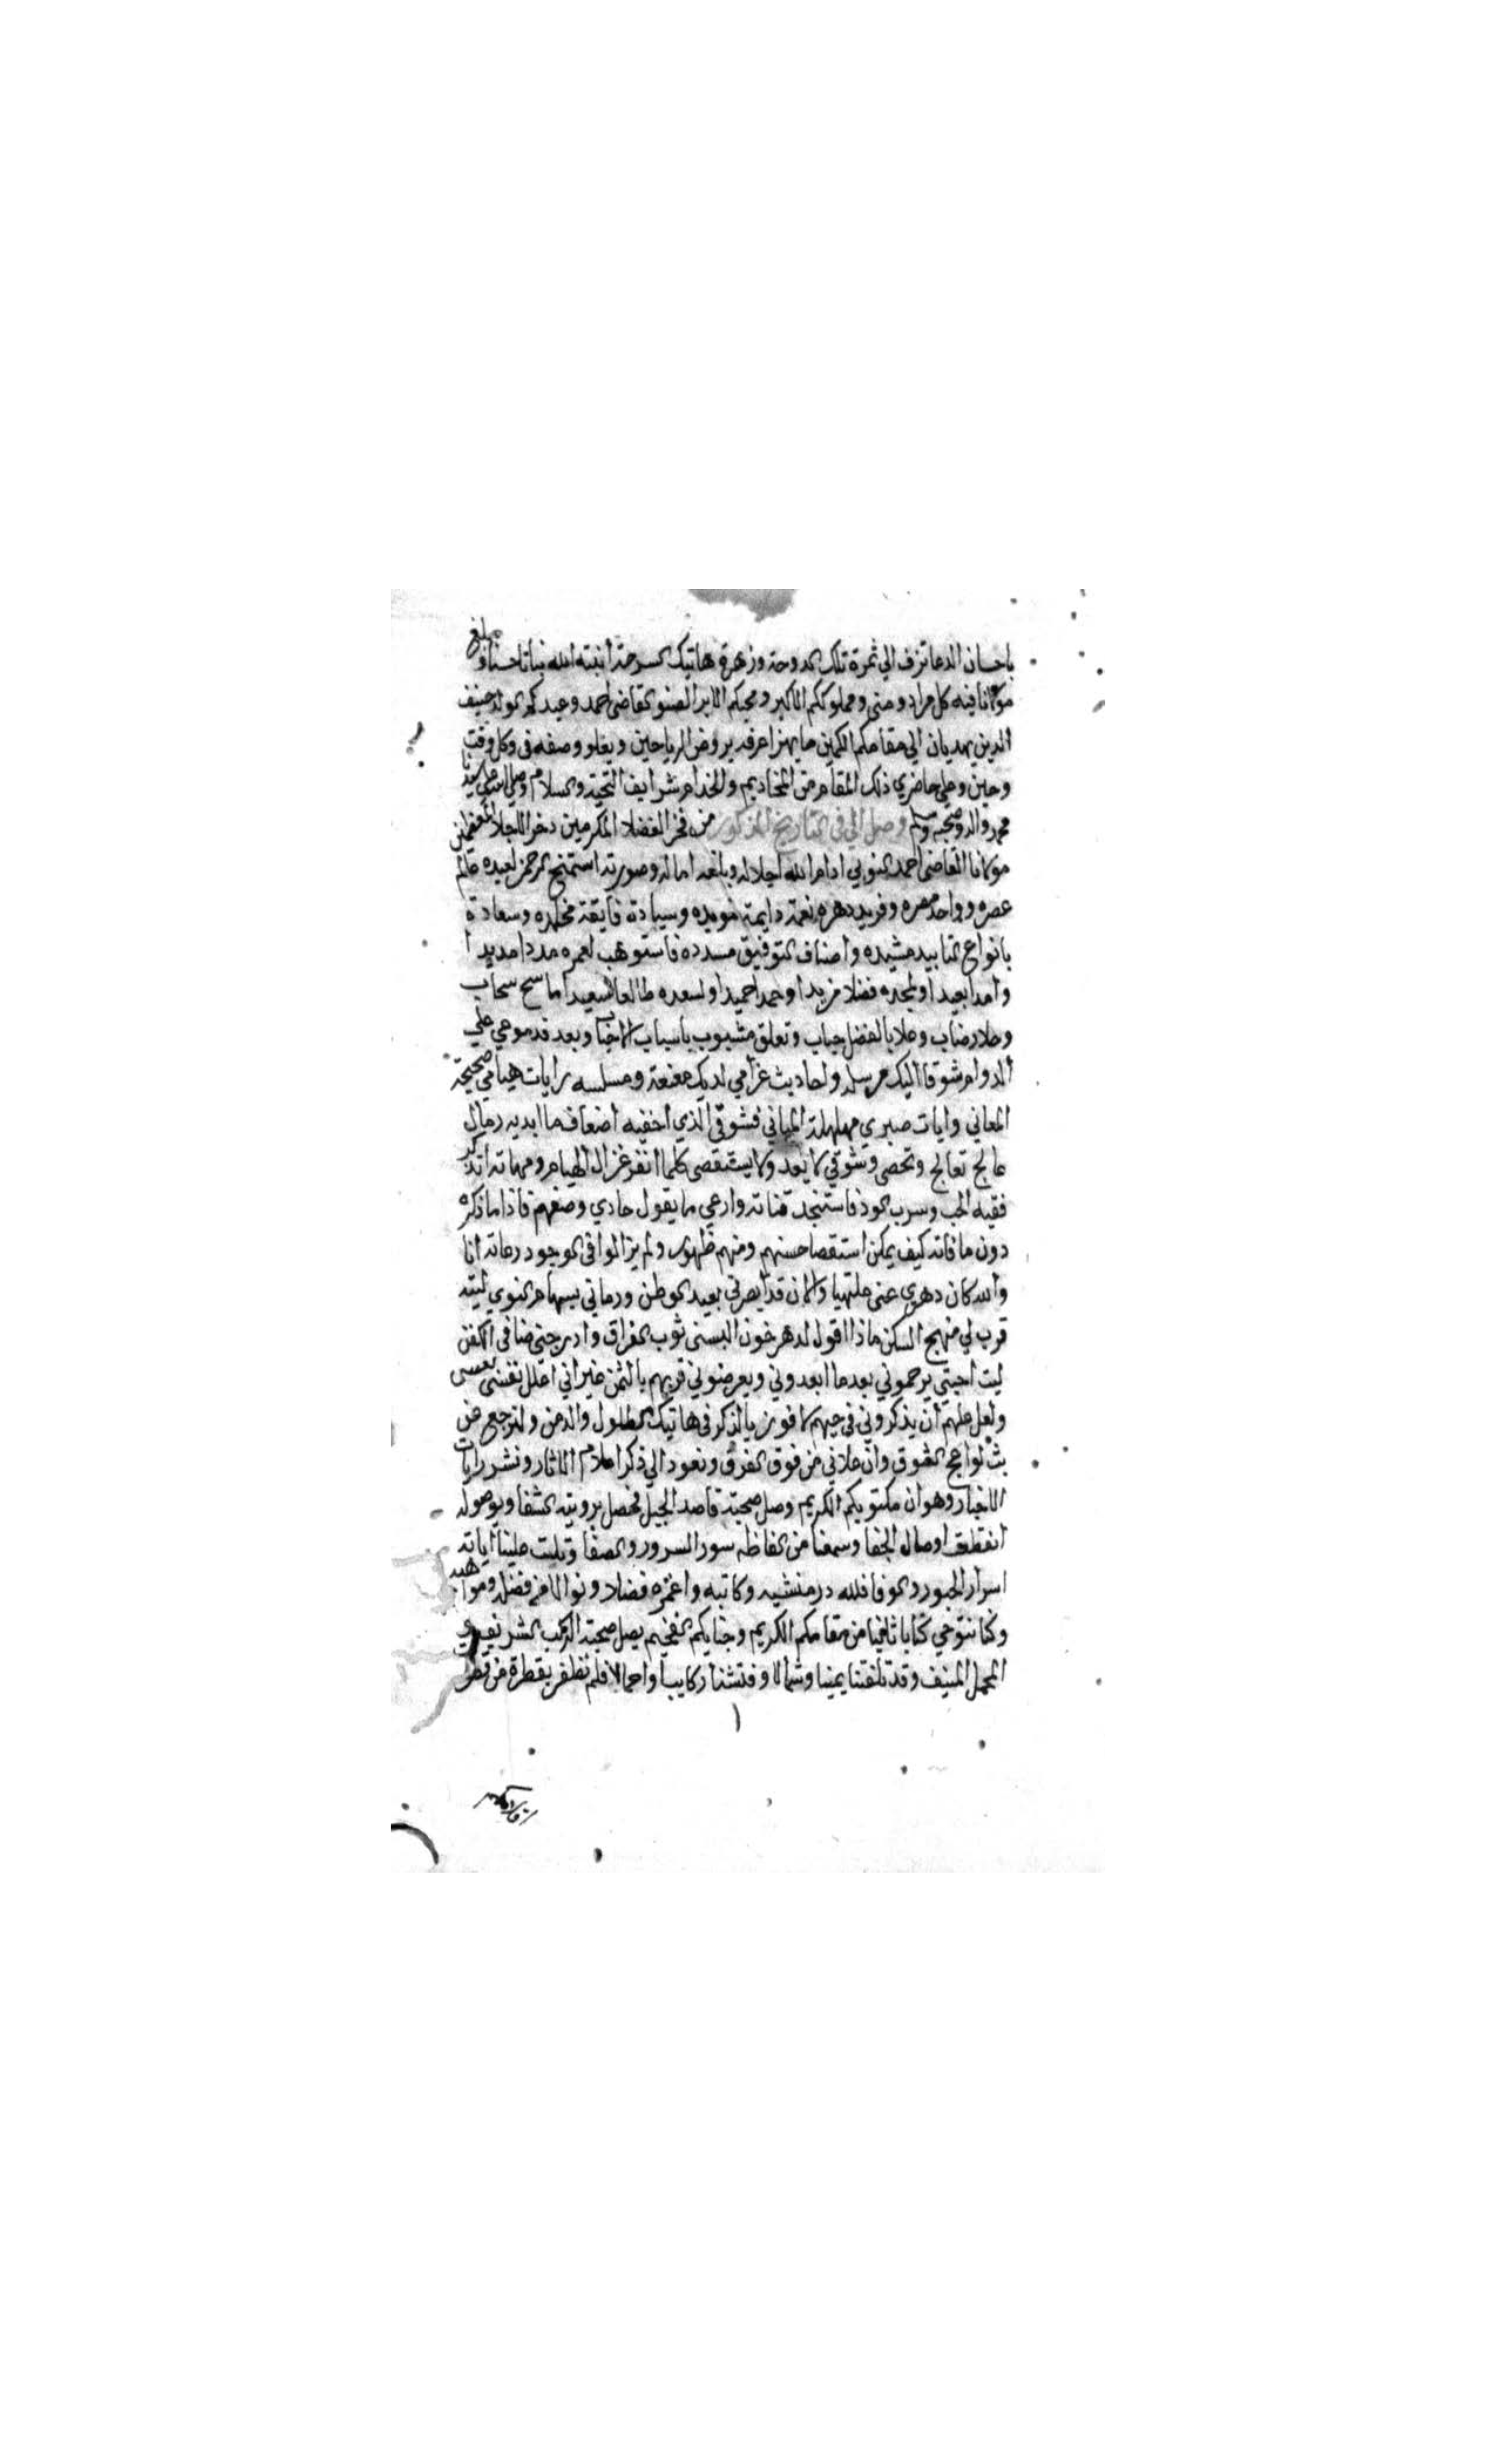 باحسان الدعا تزف الي ثمرة تلك الدوحة وزهرة هاتيك السرحة أنبته الله نباتا حسنا وبلغ
مولانا فيه كل مراد ومنى ومملوككم الاكبر ومحبكم الابر الصنو القاضي احمد وعبدكم الولد حنيف
الدين يهديان الي مقامكم الكمين ما يهزا عرفه بروض الرياحين ويعلو وصفه في كل وقت
وحين وعلي حاضري ذلك المقام من المخاديم والخدام شرايف التحية والسلام وصلي الله علي سيدنا
محمد واله وصحبه وسلم وصل الي في التاريخ المذكور من فخر الفضلا المكرمين ذخر الاجلا المعظمين
مولانا القاضي احمد النوبي ادام الله اجلاله وبلغه اماله وصورته استمنح الرحمن لعبده عالم
عصره وواحد مصره وفريد دهره نعمة دايمة مويده وسيادة فايقة مخلده وسعادة
بانواع التاييد مشيده واصناف التوفيق مسدده فاستوهب لعمره مددا مديدا
وامدا بعيدا ولمجده فضلا مزيدا وحمدا حميدا ولسعده طالعا سعيدا ما سح سحاب
وحلا رضاب وعلا بالفضل جناب وتعلق مشبوب باسباب الاحباب وبعد فدموعي علي
الدوام شوقا اليك مرسله واحاديث غرامي لديك معنعنة ومسلسه رايات هيامي صحيحة
المعاني وايات صبري مهلهلة المباني فشوقي الذي اخفيه اضعاف ما ابديه رمال
عالج تعالج وتحصى وشوقي لا يعد ولا يستقصى كلما انفر غزال الهيام ومهاته اتذكر
فقيه الحب وسرب فاستنجد وارعي ما يقول حادي وصفهم فاذا ما ذكره
دون ما فاته كيف يمكن استقصا حسنهم ومنهم ظهور ولم يزالوا في الوجود انا
والله كان دهري عني ملتهيا والان قد ابصرني بعيد الوطن ورماني بسهام النوي ليته
قرب لي منهج السكن ماذا اقول لدهر خون البسني ثوب الفراق وادرجني ضنا في الكفن
ليت احبتي يرحموني بعد ما ابعدوني ويعرضوني قربهم بالثمن غير اني اعلل نفسي بعسى
ولعل علهم أن يذكروني في حيهم لافوز بالذكر في هاتيك الطلول والدمن ولنرجع عن
بث لواعج الشوق وان علاني من فوق الفرق ونعود الي ذكر اعلام الاثار ونشر رايات
الاخبار وهو ان مكتوبكم الكريم وصل صحبة قاصد الجبل فحصل برويته الشفا وبوصوله
انقطعت اوصال الجفا وسمعنا من الفاظه سور السرور والصفا وتليت علينا اياته
اسرار الحبور والوفا فلله در منشيه وكاتبه واغزره فضلا ونوالا فضله ومواهبه
وكنا نتوخي كتابا ثانيا من مقامكم الكريم وجنابكم الفخيم يصل صحبة الركب الشريف و
المحمل المنيف وقد تلفتنا يمينا وشمالا وفتشنا ركايبا واحمالا فلم نظفر بقطرة من قطر